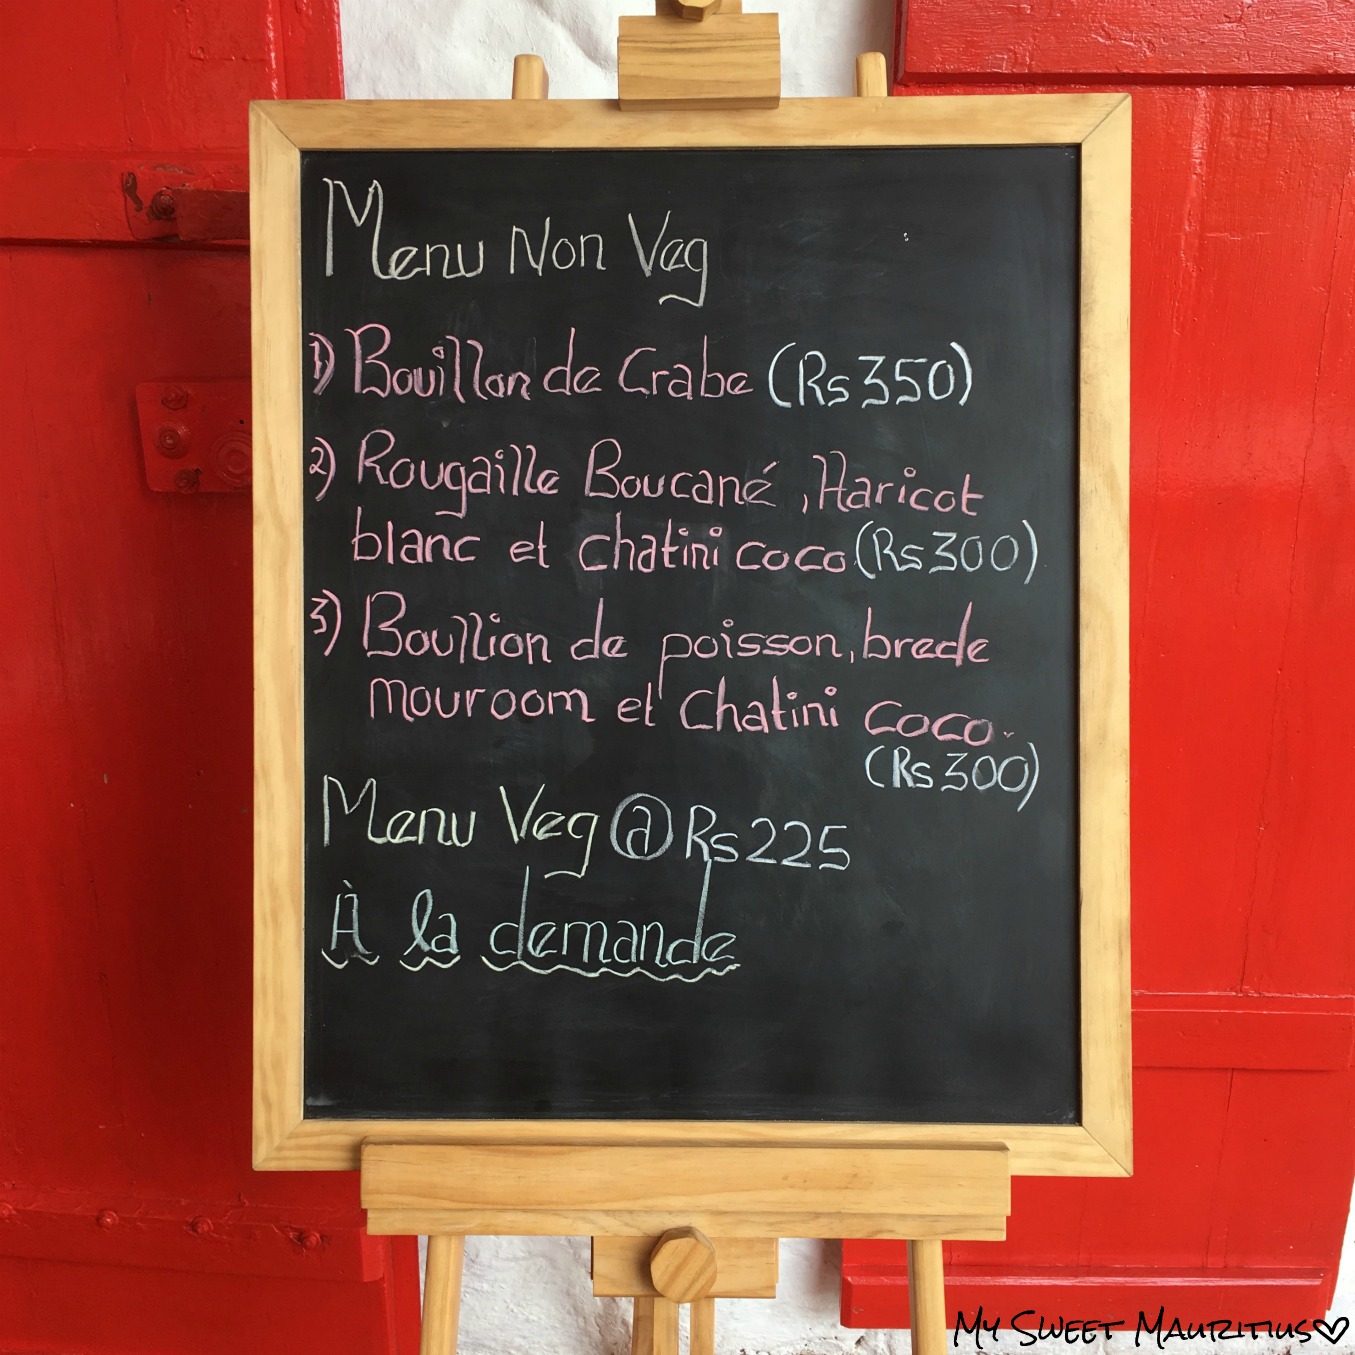 Menu Non Veg
1) Bouillon de Crabe (Rs 350)
2) Rougaille Boucané, Haricot
blanc et chatini coco (Rs 300)
3) Boullion de poisson, brede
mouroom et Chatini coco.
(Rs 300)
Menu Veg @ Rs 225
À la demande
My Sweet Mauritius♡